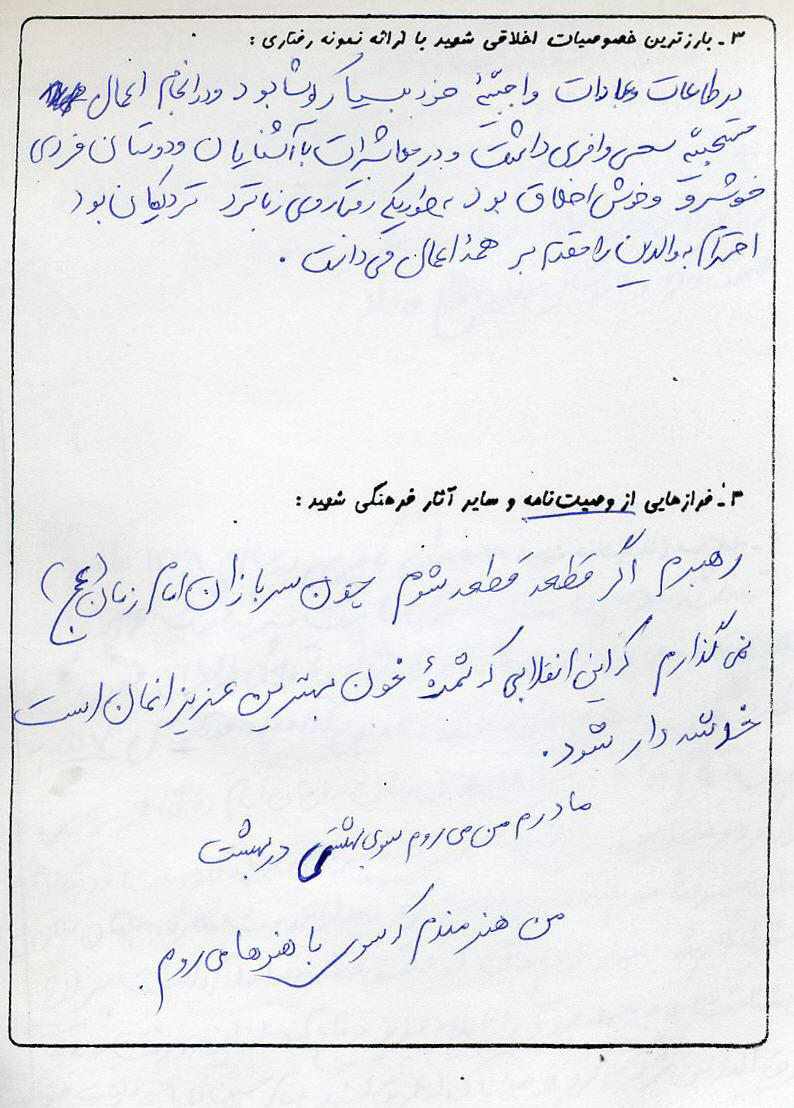 ۳ـ بارزترین خصوصیات اخلاقی شهید با ارائه نمونه رفتاری :
در طاعات و عبادات واجبیّهٔ خود بسیار کوشا بود و در انجام اعمال
مستحبیّه سعی وافری داشت و در معاشرات با آشنایان و دوستان فردی
خوشرو و خوش اخلاق بود بطوریکه رفتار وی زبانزد نزدیکان بود
احترام به والدین را مقدم بر همهٔ اعمال می دانست .
۳ـ فرازهایی از وصیت نامه و سایر آثار فرهنگی شهید :
رهبرم اگر قطعه قطعه شوم چون سربازان امام زمان (عج)
نمی گذارم که این انقلابی که ثمرهٔ خون بهترین عزیزانمان است
خدشه دار شود .
مادرم من می روم سوی بهشتی در بهشت
من هنرمندم که سوی با هنرها می روم .